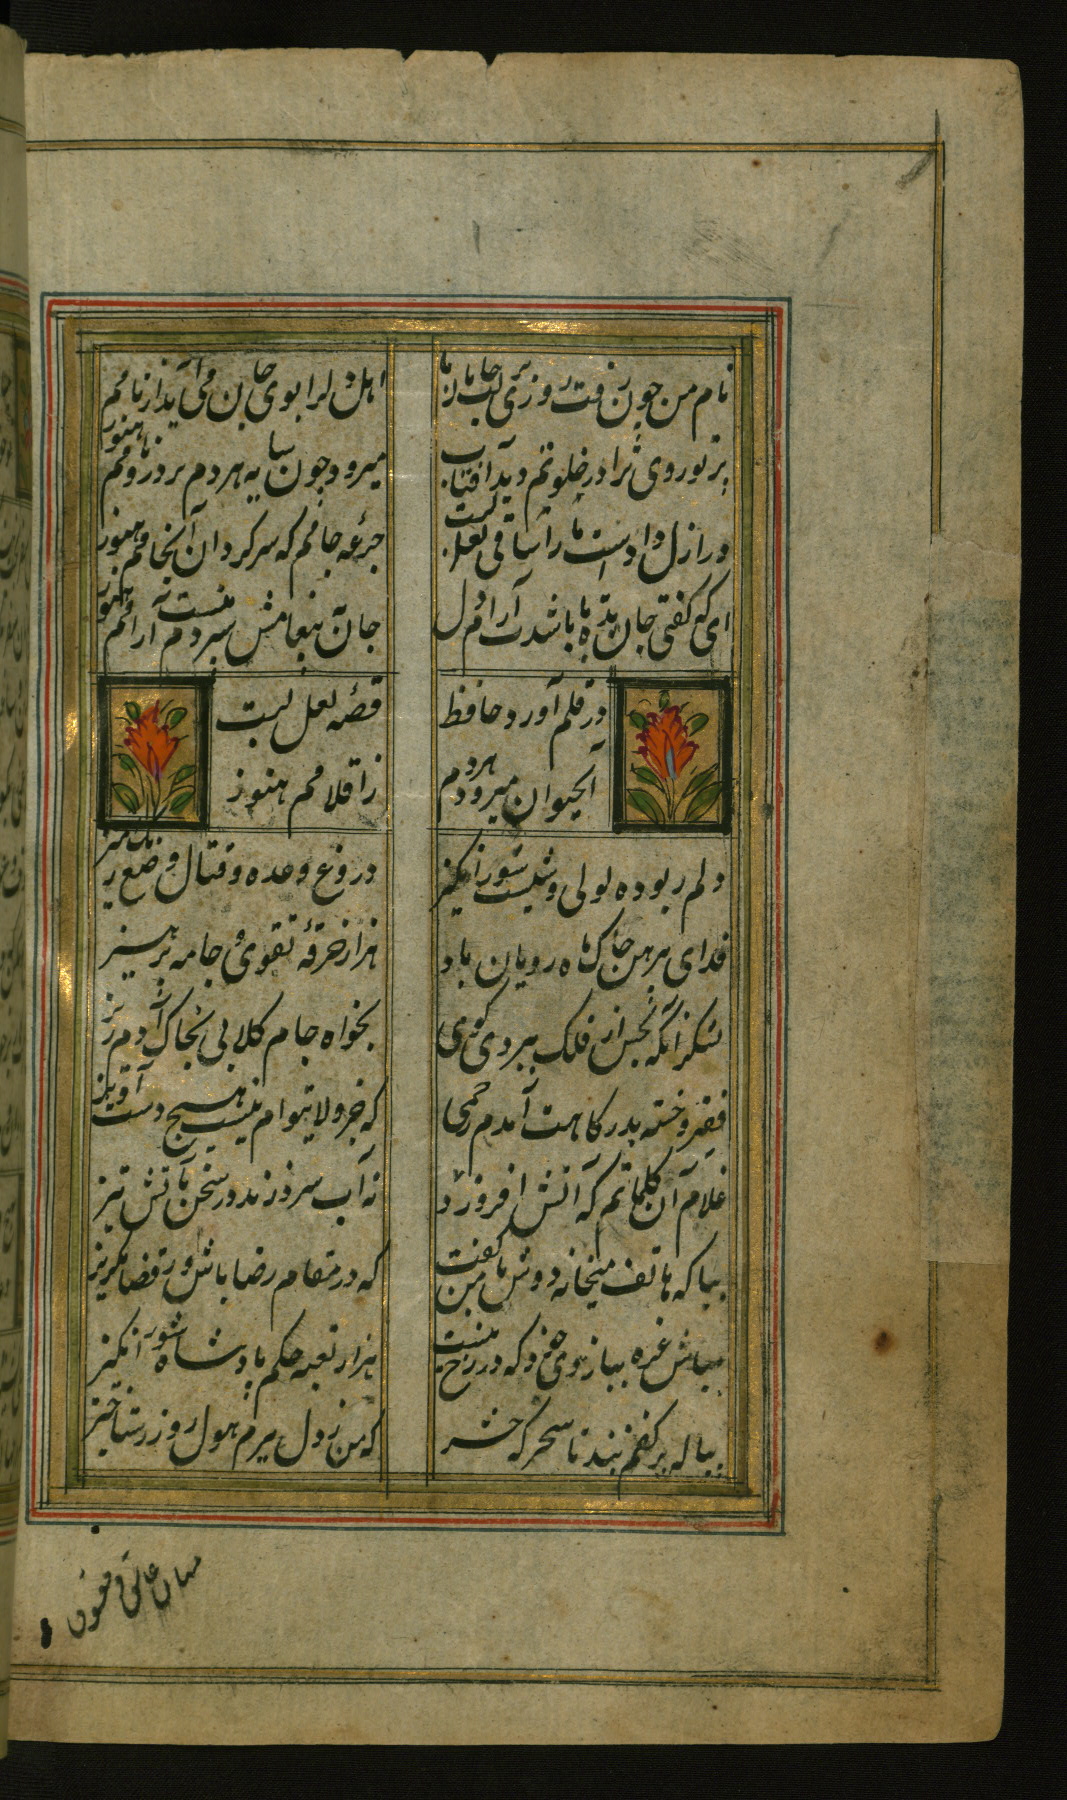 نام من چون رفت روزی بر لب جانان ما
اهل دل را بوی جان می آید از نامم هنوز
پرتو روی ترا در خلوتم دید آفتاب
میرود چون سایه هردم بر در و بامم هنوز
در ازل دادست ما را ساقی لعل لبت
جرعه جامی که سرگردان آن جامم هنوز
ای که گفتی جان بده تا باشدت آرام دل
جان بغمهایش سپردم نیست آرامم هنوز
در قلم آورد حافظ
قصه لعل لبت
آبحیوان میرود هردم
ز اقلامم هنوز
دلم ربوده لولی وشیست شورانگیز
دروغ وعده و قتال وضع و رنگ آمیز
فدای پیرهن چاک ماه رویان باد
هزار خرقه تقوی و جامه پرهیز
بشکر آنکه بحسن از فلک ببردی گوی
بخواه جام گلابی بخاک آدم ریز
فقیر و خسته بدرگاهت آمدم رحمی
که جز ولای توام نیست هیچ دست آویز
غلام آن کلماتم که آتش افروزد
نه آب سرد زند در سخن بآتش تیز
بیا که هاتف میخانه دوش با من گفت
که در مقام رضا باش و از قضا مگریز
مباش غره ببازوی خود که در خبرست
هزار تعبیه حکم پادشاه انگیز
پیاله بر کفنم بند تا سحرگه حشر
بمی ز دل ببرم هول روز رستاخیز
میان عاشق و معشوق